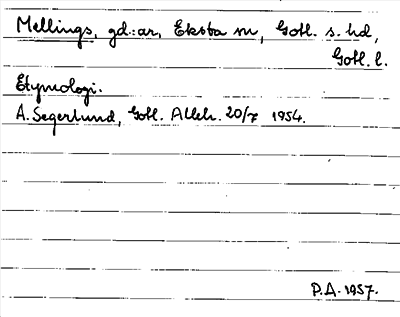 Mellings, gd:ar, Eksta sn, Gotl. s. hd,
Gotl. l.
Etymologi.
A. Segerlund, Gotl. Alleh. 20/7 1954.
P.A. 1957.